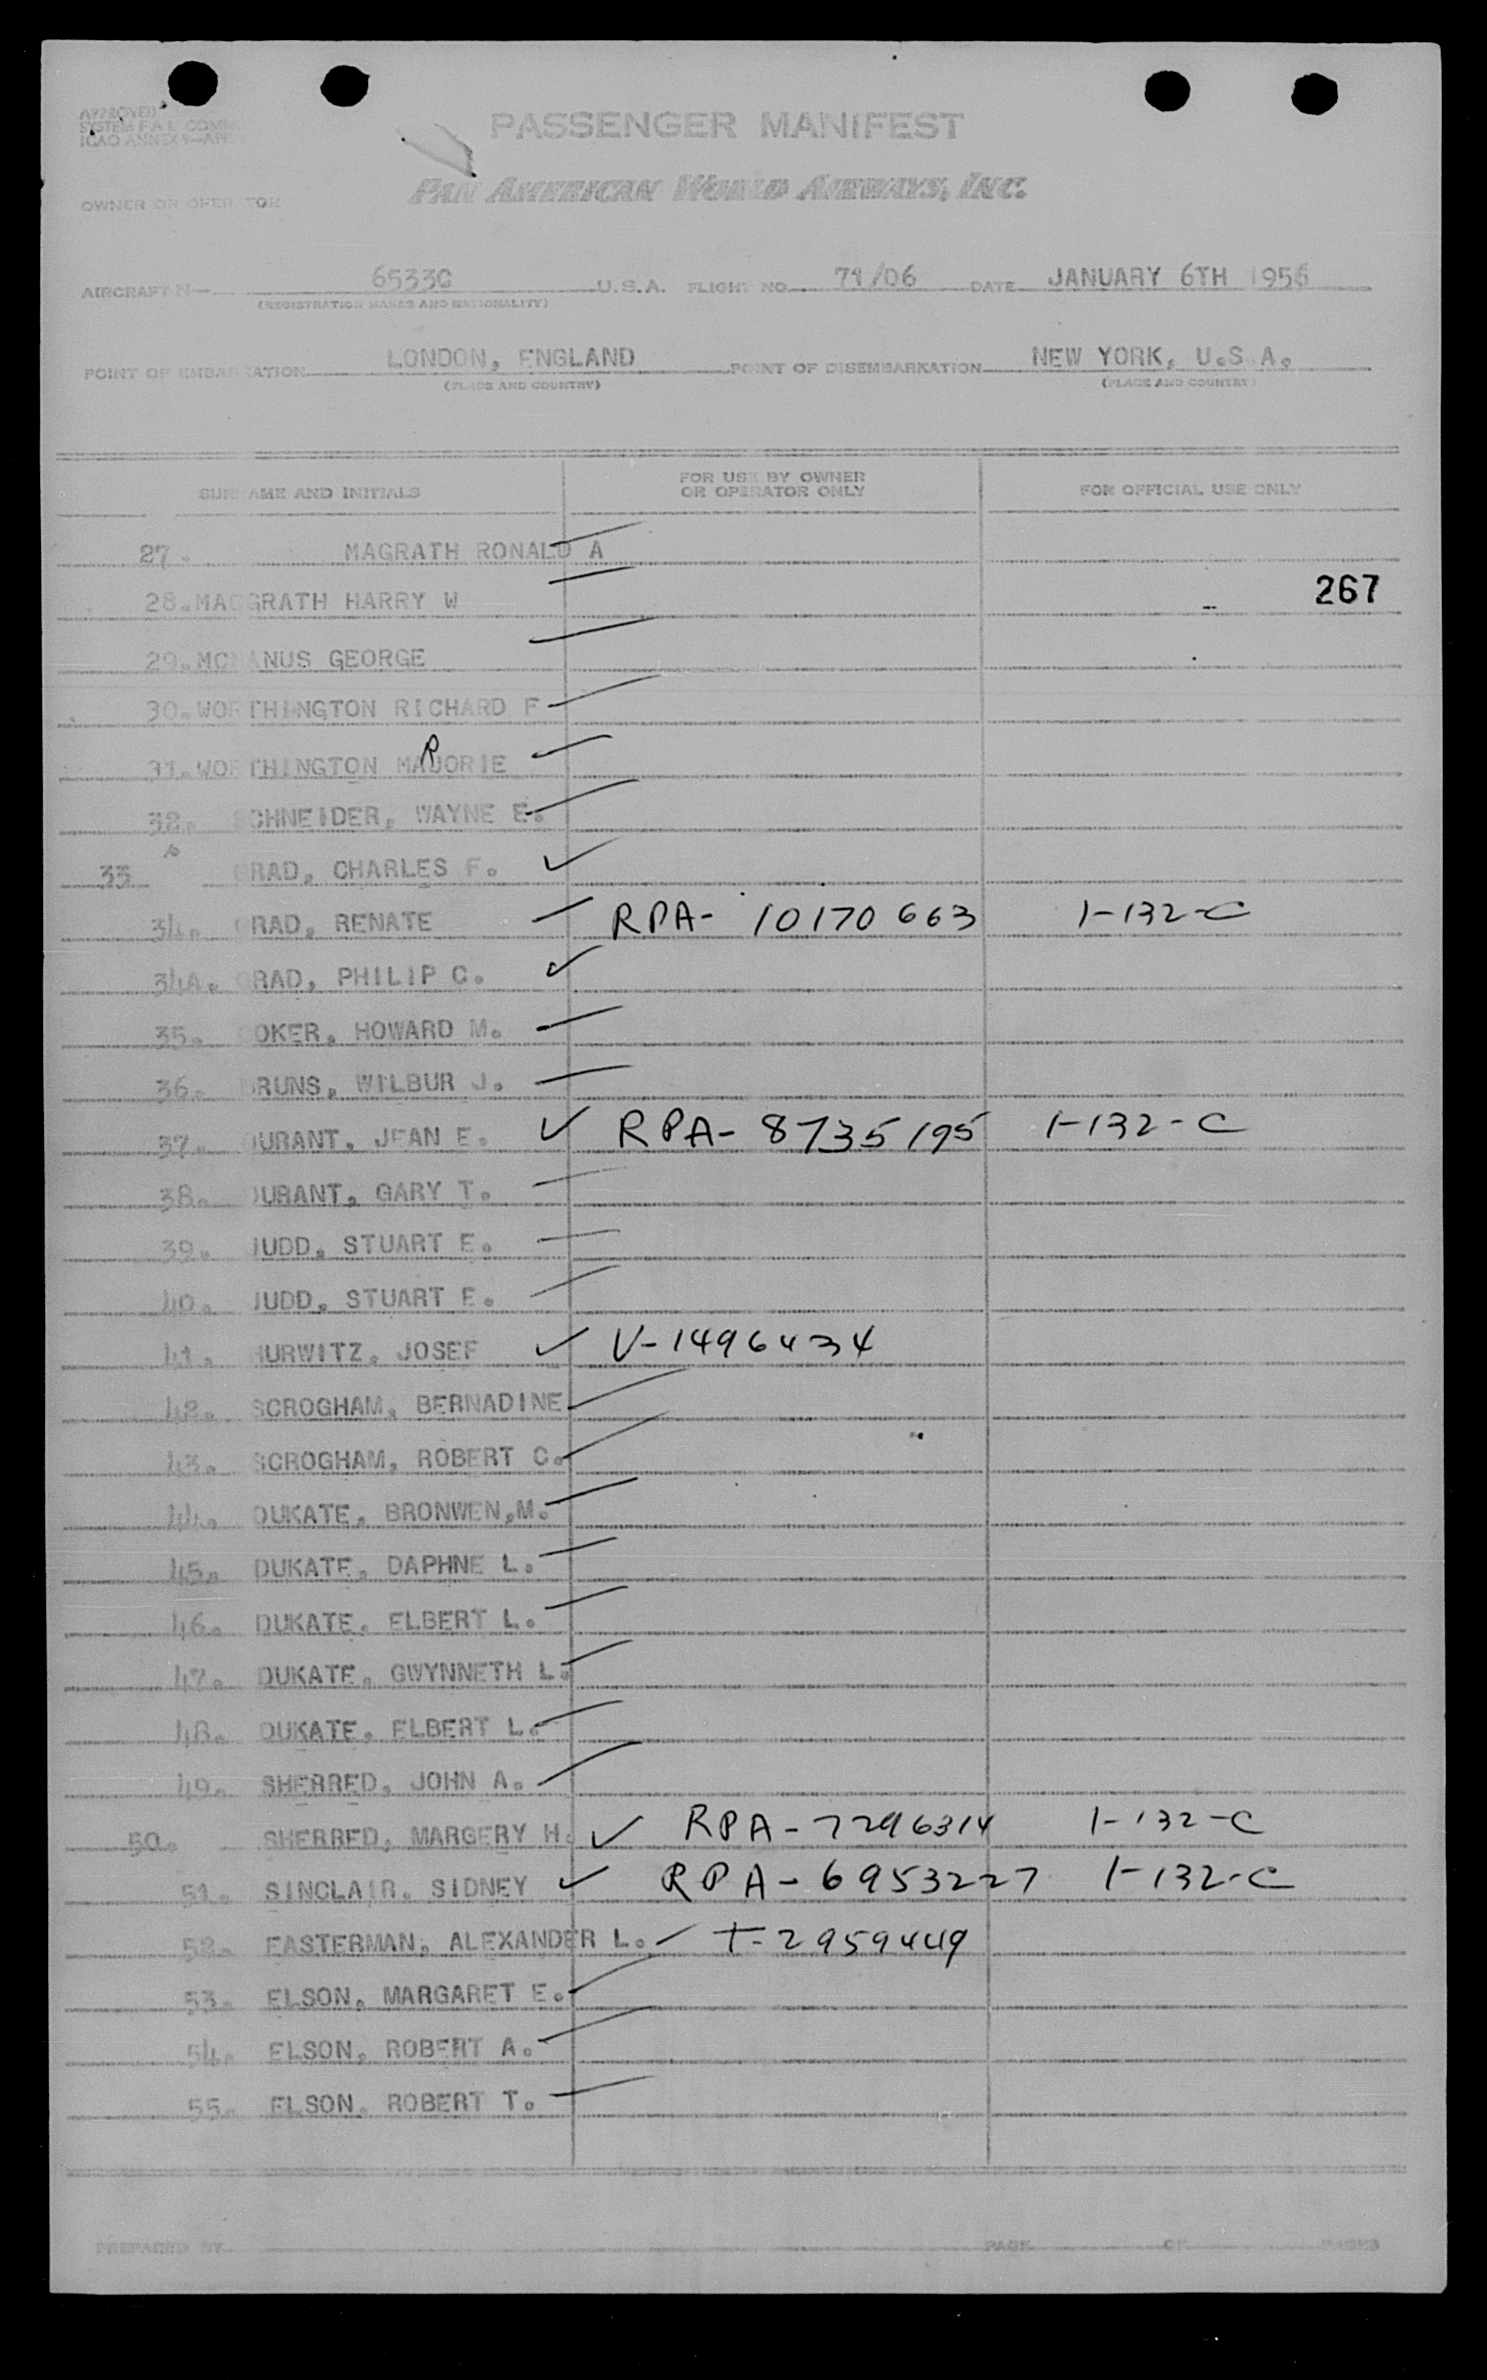 APPROVED
SYSTEM F.A.L. COMM
ICAO ANNEX 9—APP
PASSENGER MANIFEST
OWNER OR OPERATOR PAN AMERICAN WORLD AIRWAYS, INC.
AIRCRAFT N 6533C U.S.A. FLIGHT NO. 71/06 DATE JANUARY 6TH 1956
(REGISTRATION MARKS AND NATIONALITY)
POINT OF EMBARKATION LONDON, ENGLAND POINT OF DISEMBARKATION NEW YORK, U.S.A.
(PLACE AND COUNTRY) (PLACE AND COUNTRY)
SURNAME AND INITIALS FOR USE BY OWNER OR OPERATOR ONLY FOR OFFICIAL USE ONLY
27. MAGRATH RONALD A
28. MACGRATH HARRY W 267
29. MCMANUS GEORGE
30. WORTHINGTON RICHARD F
31. WORTHINGTON MARJORIE
32. SCHNEIDER, WAYNE E.
33 GRAD, CHARLES F.
34. GRAD, RENATE RPA- 10170663 1-132-C
34A. GRAD, PHILIP C.
35. OKER, HOWARD M.
36. BRUNS, WILBUR J.
37. DURANT, JEAN E. RPA- 8735195 1-132-C
38. DURANT, GARY T.
39. JUDD, STUART E.
40. JUDD, STUART E.
41. HURWITZ, JOSEF V-1496434
42. SCROGHAM, BERNADINE
43. SCROGHAM, ROBERT C.
44. DUKATE, BRONWEN,M.
45. DUKATE, DAPHNE L.
46. DUKATE, ELBERT L.
47. DUKATE, GWYNNETH L.
48. DUKATE, ELBERT L.
49. SHERRED, JOHN A.
50. SHERRED, MARGERY H. RPA-7296314 1-132-C
51. SINCLAIR, SIDNEY RPA-6953227 1-132-C
52. EASTERMAN, ALEXANDER L. T-2959449
53. ELSON, MARGARET E.
54. ELSON, ROBERT A.
55. ELSON, ROBERT T.
PREPARED BY PAGE OF PAGES